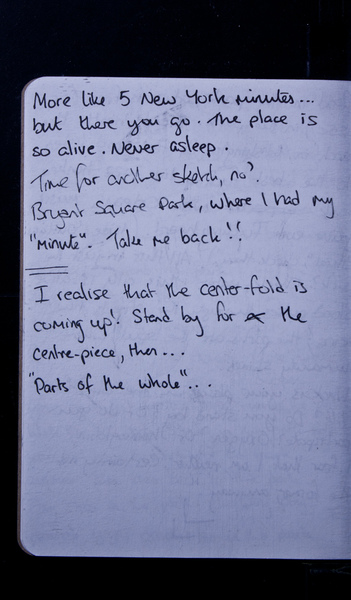 More like 5 New York minutes...
but there you go. The place is
so alive. Never asleep.
Time for another sketch, no?
Bryant Square Park, where I had my
"minute". Take me back!!
I realise that the center-fold is
coming up! Stand by for the
centre-piece, then...
"Parts of the whole"...